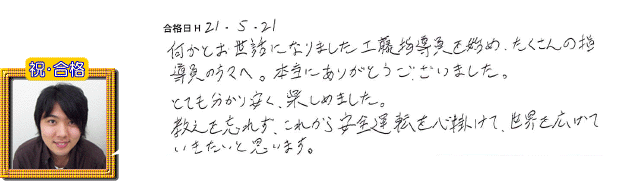 合格日H 21・5・21
何かとお世話になりました工藤指導員を始め、たくさんの指
導員の方々へ。本当にありがとうございました。
とても分かり安く、楽しめました。
教えを忘れず、これから安全運転を心掛けて、世界を広げて
いきたいと思います。
祝・合格